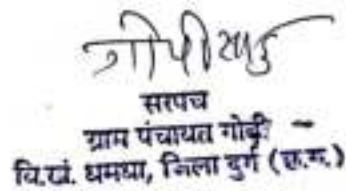 गोपी साहू
सरपंच
ग्राम पंचायत गोबरी
वि.खं. धमधा, जिला दुर्ग (छ.ग.)